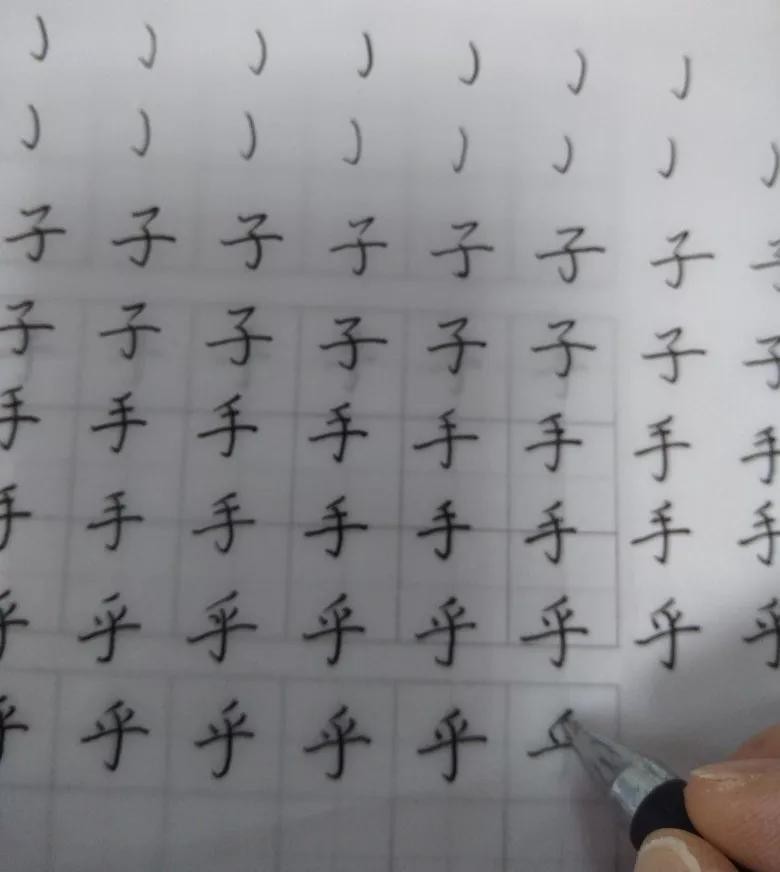 亅亅亅亅亅亅亅
亅亅亅亅亅亅亅亅
子子子子子子子子
子子子子子子子子
手手手手手手手手
手手手手手手手手
乎乎乎乎乎乎乎乎
乎乎乎乎乎